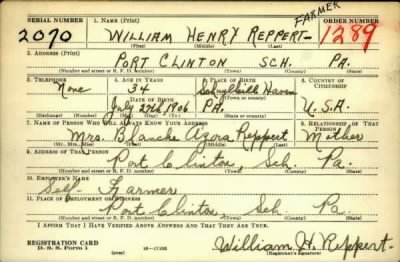 SERIAL NUMBER 1. NAME (Print) FARMER ORDER NUMBER
2070 WILLIAM HENRY REPPERT 1289
(First) (Middle) (Last)
2. ADDRESS (Print)
PORT CLINTON SCH. PA.
(Number and street or R. F. D. number) (Town) (County) (State)
3. TELEPHONE 4. AGE IN YEARS 5. PLACE OF BIRTH 6. COUNTRY OF CITIZENSHIP
None 34 Schuylkill Haven
DATE OF BIRTH (Town or county)
July 27th 1906 PA. U.S.A.
(Exchange) (Number) (Mo.) (Day) (Yr.) (State or country)
7. NAME OF PERSON WHO WILL ALWAYS KNOW YOUR ADDRESS 8. RELATIONSHIP OF THAT PERSON
Mrs. Blanche Azora Reppert Mother
(Mr., Mrs., Miss) (First) (Middle) (Last)
9. ADDRESS OF THAT PERSON
Port Clinton Sch. Pa.
(Number and street or R. F. D. number) (Town) (County) (State)
10. EMPLOYER'S NAME
Self- Farmer
11. PLACE OF EMPLOYMENT OR BUSINESS
Port Clinton Sch. Pa.
(Number and street or R. F. D. number) (Town) (County) (State)
I AFFIRM THAT I HAVE VERIFIED ABOVE ANSWERS AND THAT THEY ARE TRUE.
REGISTRATION CARD William H. Reppert
D. S. S. Form 1 (over) 16-17105 (Registrant's signature)